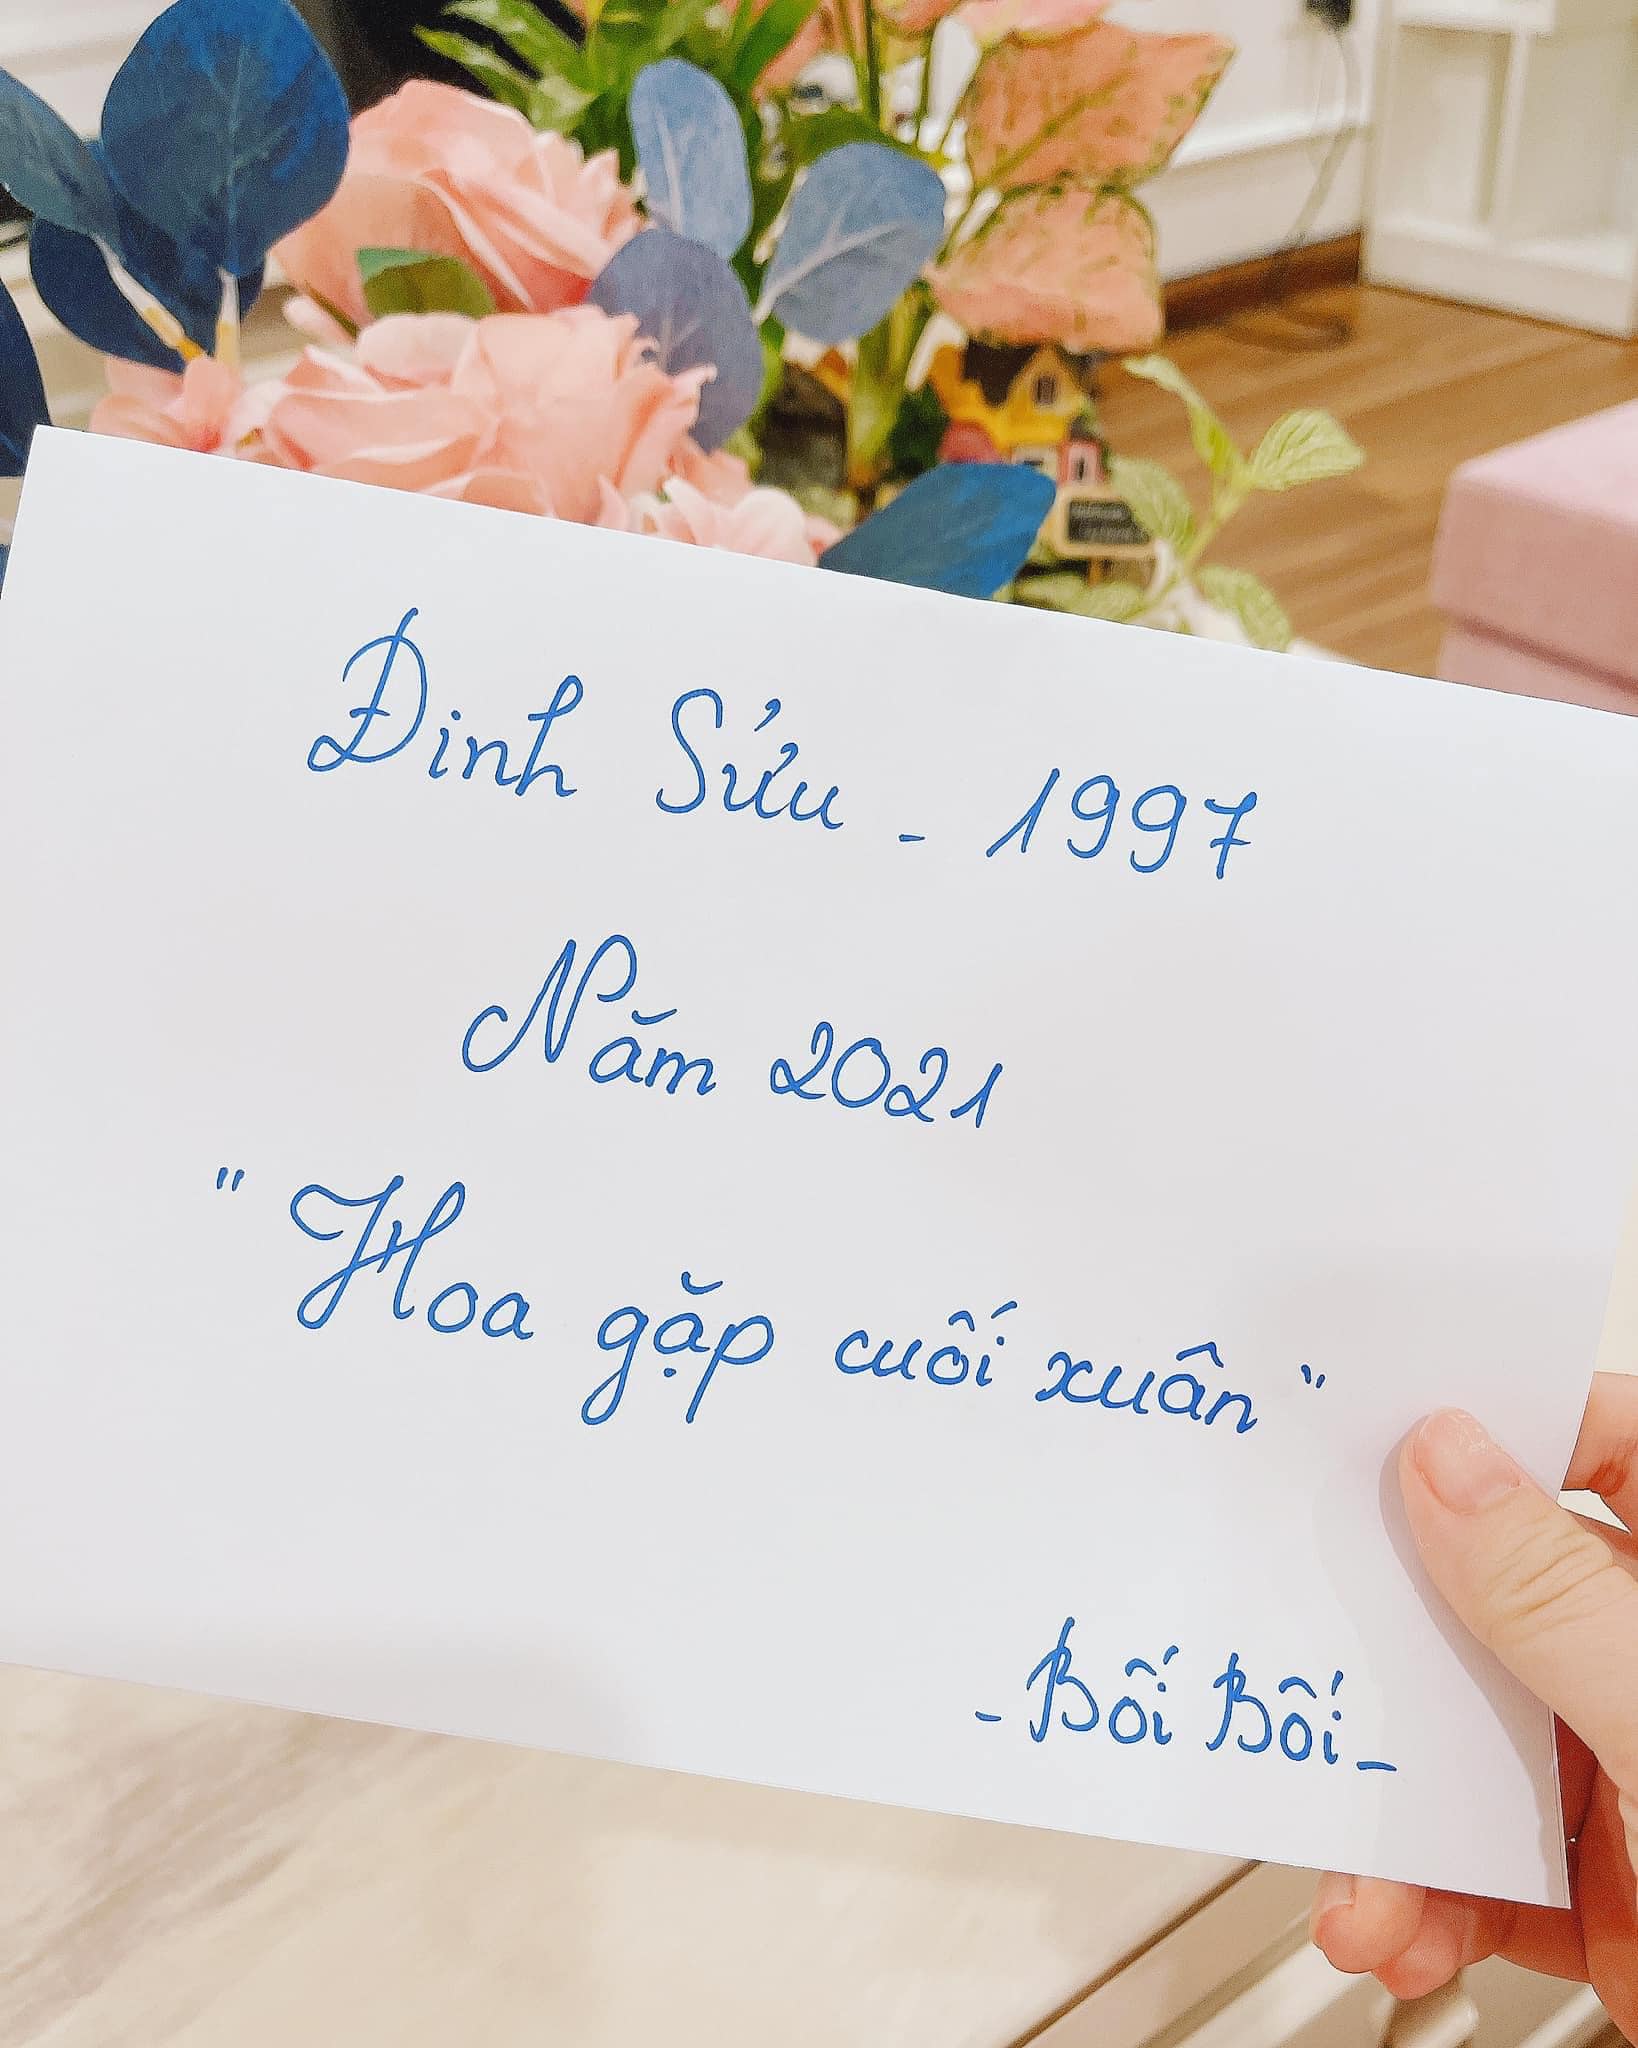 Đinh Sửu - 1997
Năm 2021
" Hoa gặp cuối xuân "
- Bối Bối -